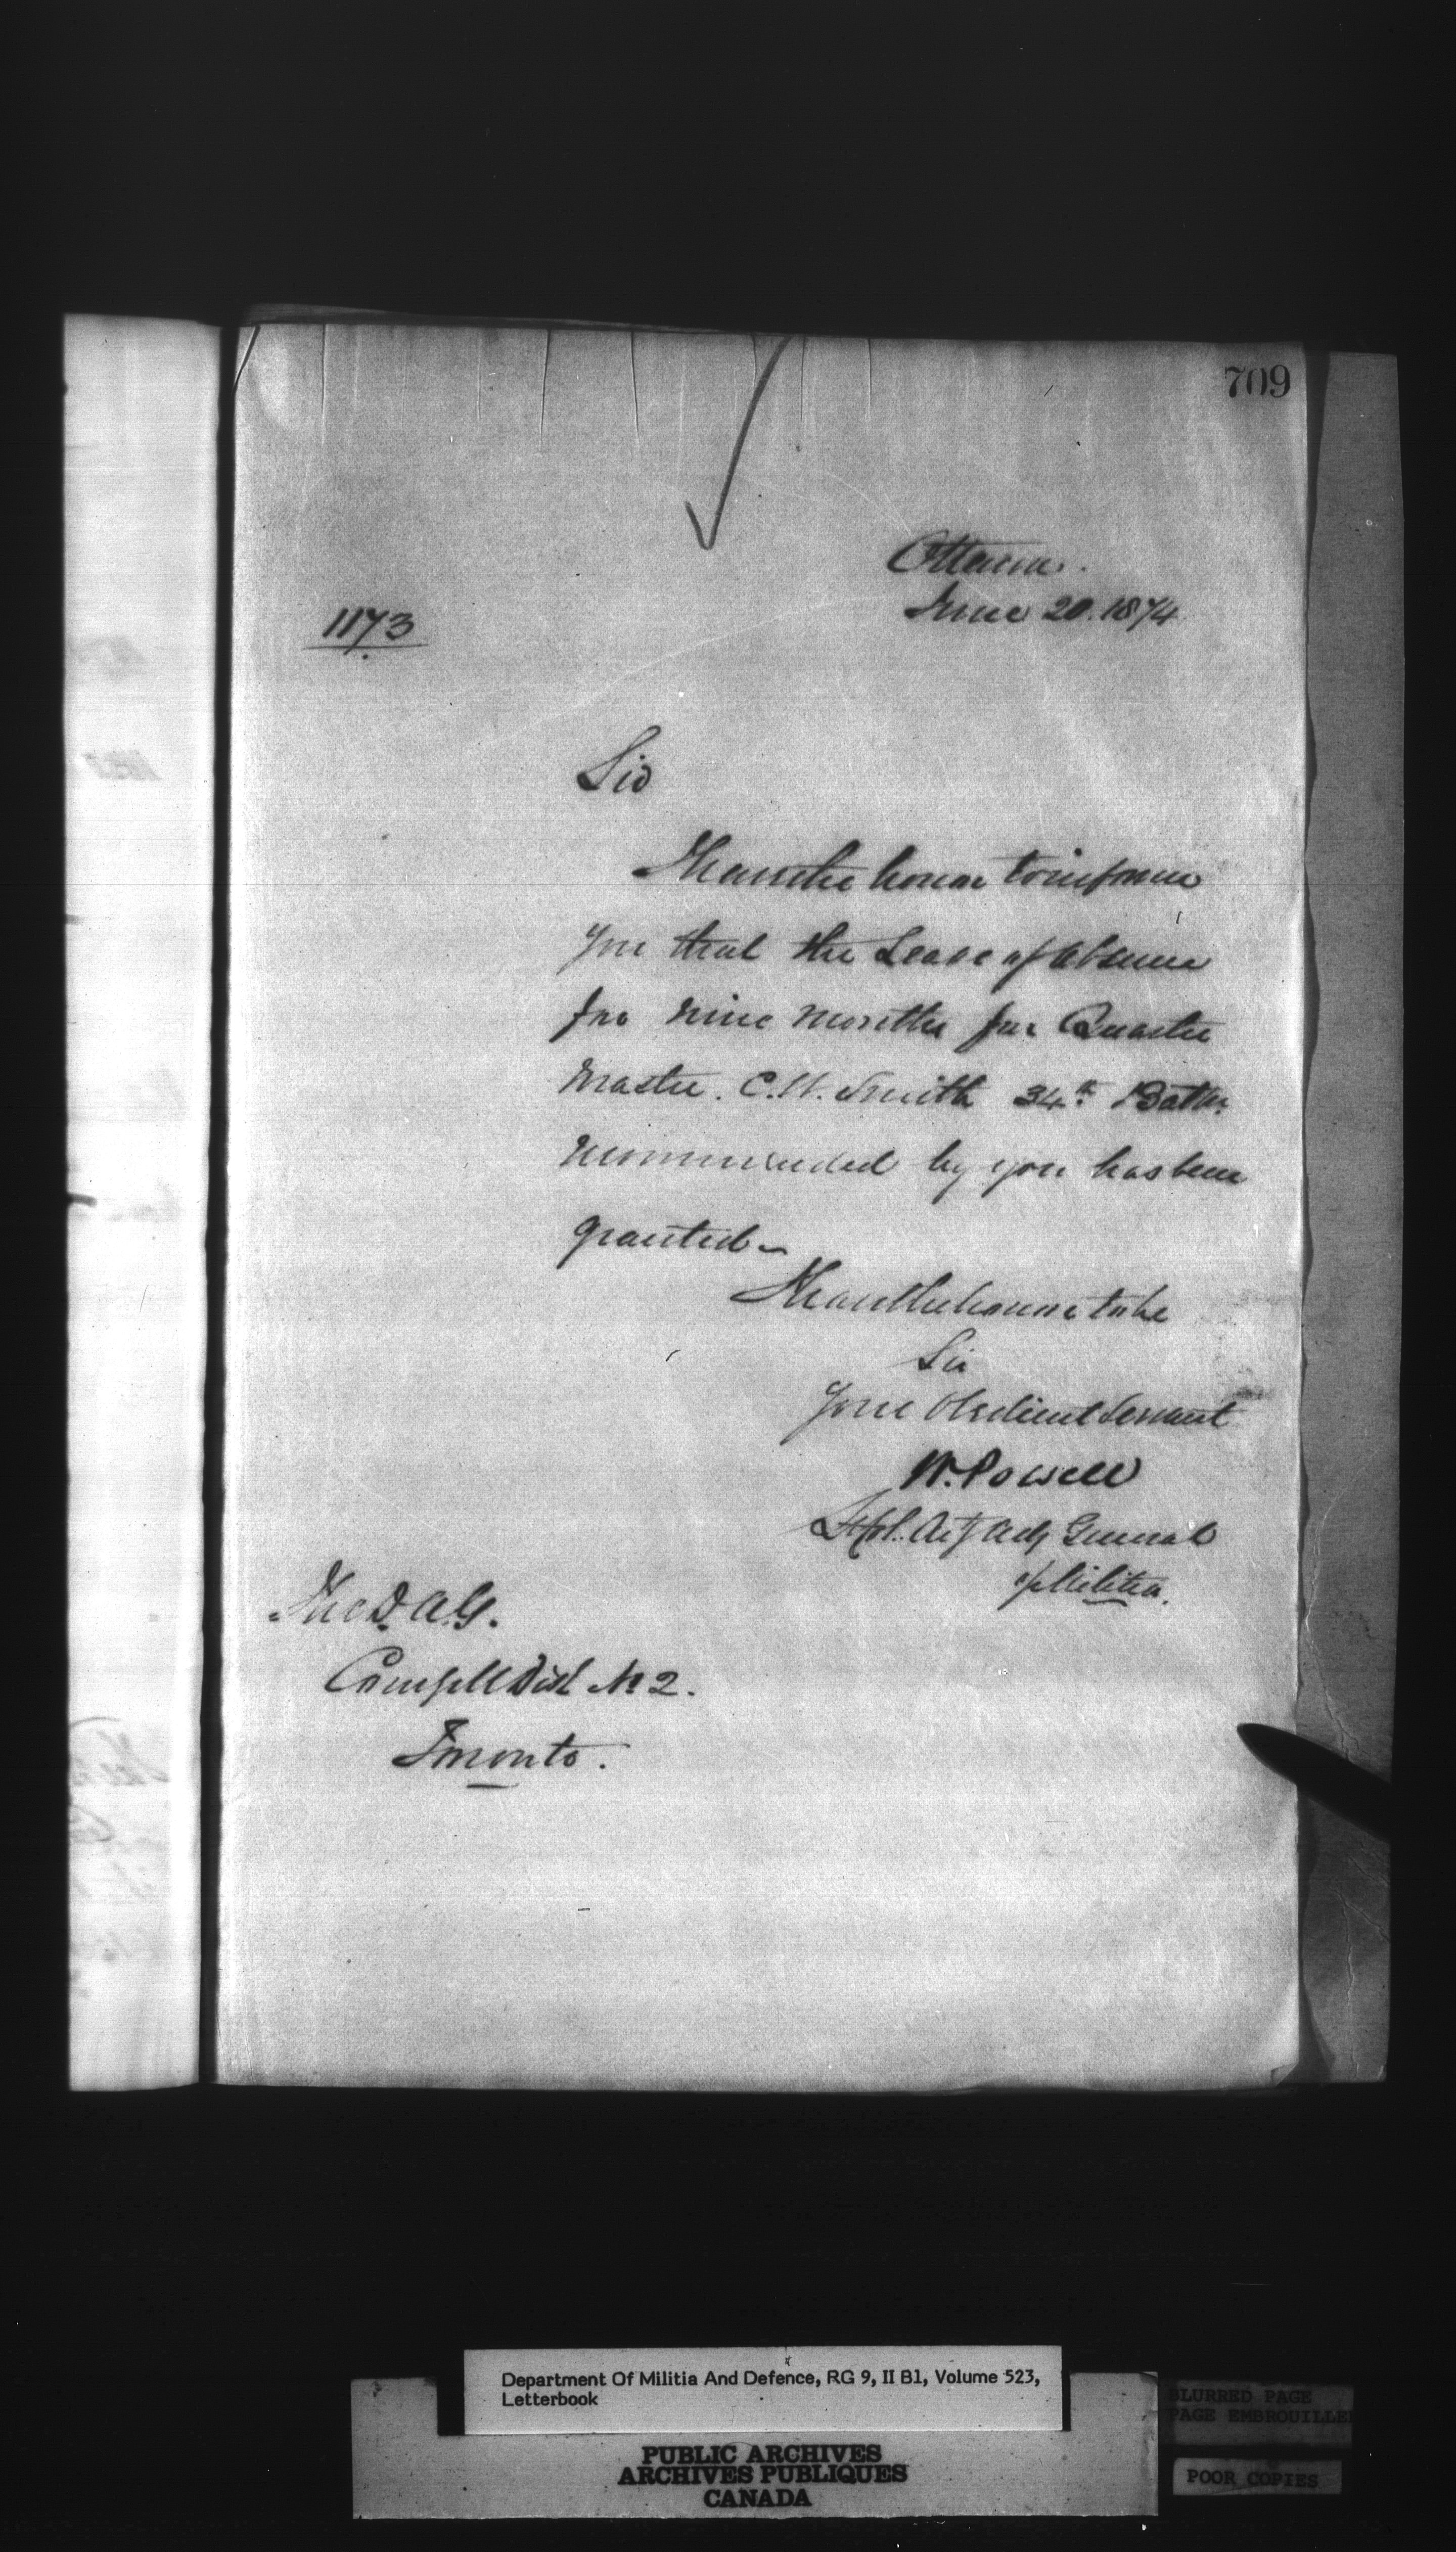 709
Ottawa.
June 20. 1874
1173
Sir
I have the honor to inform
you that the Leave of absence
for nine months for Quarter
Master. C. H. Smith 34th Battn.
recommended by you has been
granted-
I have the honor to be
Sir
Your Obedient Servant
W. Powell
Lt Col. Actg Adj General
of Militia.
The D. A. G.
Comg Mil Dist No 2.
Toronto.
Department Of Militia And Defence, RG 9, II B1, Volume 523,
Letterbook
PUBLIC ARCHIVES
ARCHIVES PUBLIQUES
CANADA
BLURRED PAGE
PAGE EMBROUILLE
POOR COPIES